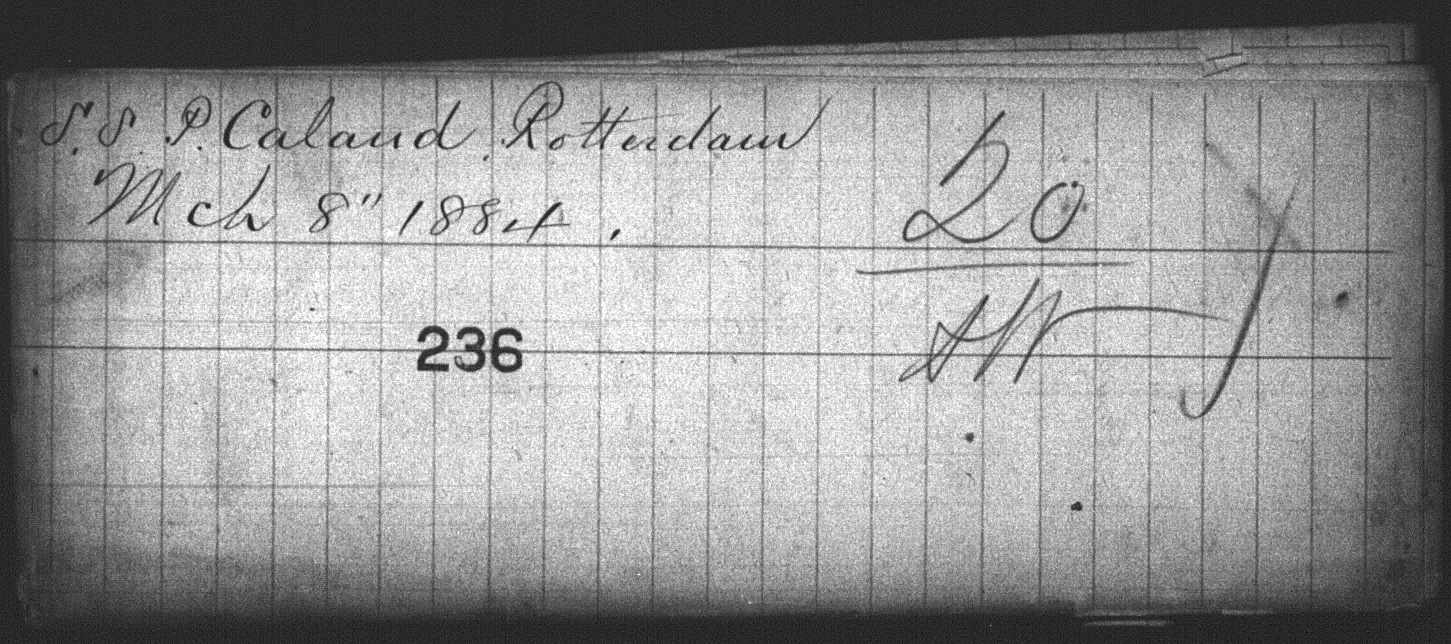 S.S. P. Caland. Rotterdam
Mch 8" 1884.
20
236